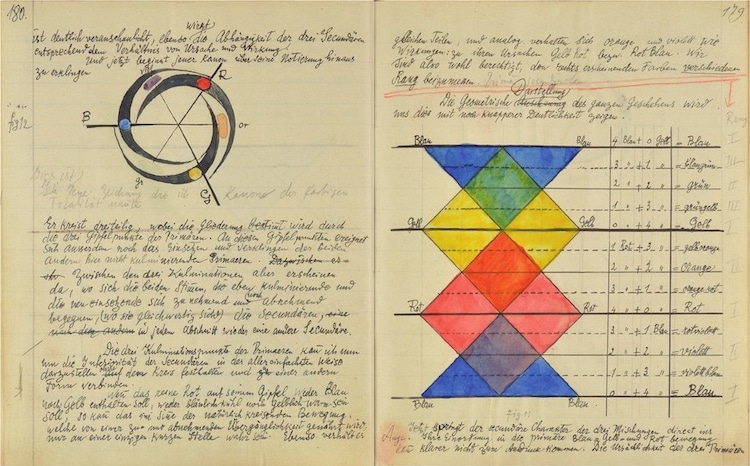 180.
wirkt
ist deutlich veranschaulicht, ebenso die Abhängigkeit der drei Secundären
entsprechend dem Verhältnis von Ursache und Wirkung.
Und jetzt beginnt jener Kanon über seine Notierung hinaus
zu erklingen
viol
R
B
or
gr
G
Kanons der farbigen
Totalität
Er kreist dreiteilig, wobei die Gliederung bestimt wird durch
die drei Gipfelpunkte der Primären. An diesen Gipfelpunkten ereignet
sich ausserdem noch das Einsetzen und Verklingen der beiden
andern hier nicht kulminierenden Primaeren. Dazwischen
Zwischen den drei Kulminationen aber erscheinen
da, wo sich die beiden Stimen, die eben kulminierende und
die neu einsetzende sich zunehmend und abnehmend
begegnen, (wo sie gleichwertig sind) die Secundären, eine
nach der andern in jedem Abschnitt wieder eine andere Secundäre.
Die drei Kulminationspunkte der Primaeren kan ich nun
um die Inferiorität der Secundären in der allereinfachsten Weise
darzustellen auf dem Kreis festhalten und zu einer andern
Form verbinden.
Wen das reine Rot auf seinem Gipfel weder Blau
noch Gelb enthalten soll, weder blaulich kühl noch gelblich warm sein
soll, so kan das im Sine der natürlich kreisenden Bewegung,
welche von einer zu- und abnehmenden Übergänglichkeit genährt wird,
nur an einer einzigen kurzen Stelle wahr sein. Ebenso verhält er
179
gleichen Teilen, und analog verhalten sich orange und violett wie
Wirkungen: zu ihren Ursachen Gelb Rot bezw. Rot Blau. Wir
sind also wohl berechtigt, den rechts erscheinenden Farben verschiedenen
Rang beizumessen.
Darstellung
Die Geometrische des ganzen Geschehens wird
uns dies mit noch knapperer Deutlichkeit zeigen.
Rang
Blau Blau 4 Blau + 0 Gelb = Blau I
3 " + 1 " = blaugrün III
2 " + 2 " = grün II
1 " + 3 " = grüngelb III
Gelb Gelb 0 " + 4 " = Gelb I
1 Rot + 3 " = gelborange
2 " + 2 " = Orange II
3 " + 1 " = orangerot
Rot Rot 4 " + 0 " = Rot I
3 " + 1 Blau = rotviolett
2 " + 2 " = violett
1 " + 3 " = violettblau
Blau Blau 0 " + 4 " = Blau I
Jetzt springt der secundäre Charakter der drei Mischungen direct ins
Auge. Ihre Einordnung in die primäre Blau-, Gelb- und Rot Bewegung
kan klarer nicht zum Ausdruck kommen. Die Ursächlichkeit der drei Primären